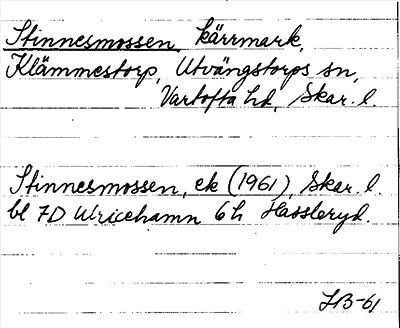 Stinnesmossen, kärrmark,
Klämmestorp, Utvängstorps sn,
Vartofta hd, Skar. l
Stinnesmossen, ek (1961), Skar. l.
bl 7D Ulricehamn 6h Hassleryd.
JB-61